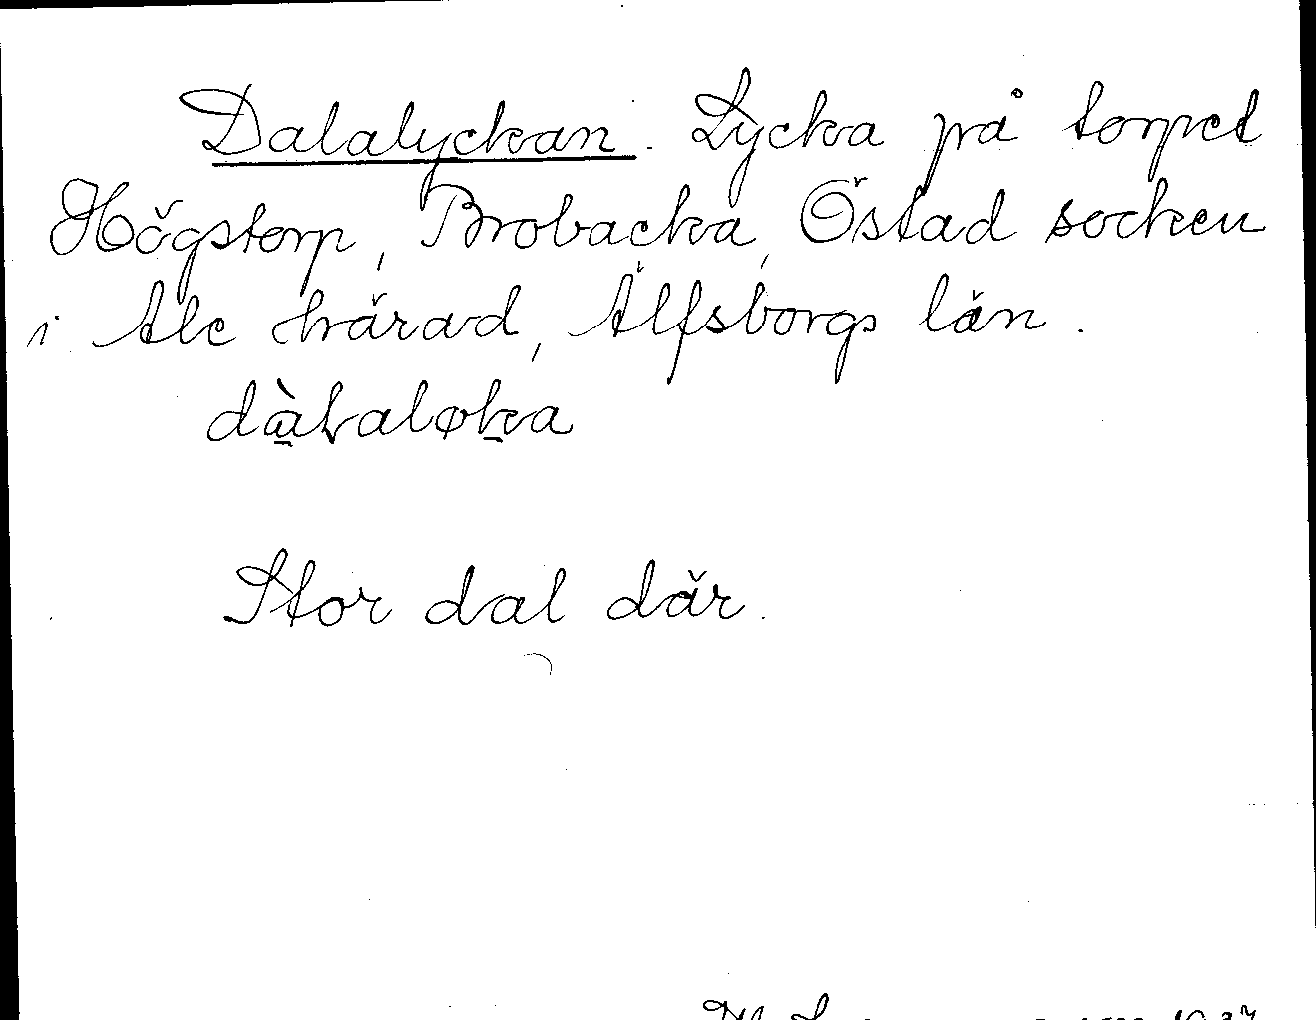 Dalalyckan. Lycka på torpet
Högstorp, Brobacka, Östad socken
i Ale härad, Älfsborgs län.
dàlaløka
Stor dal där.